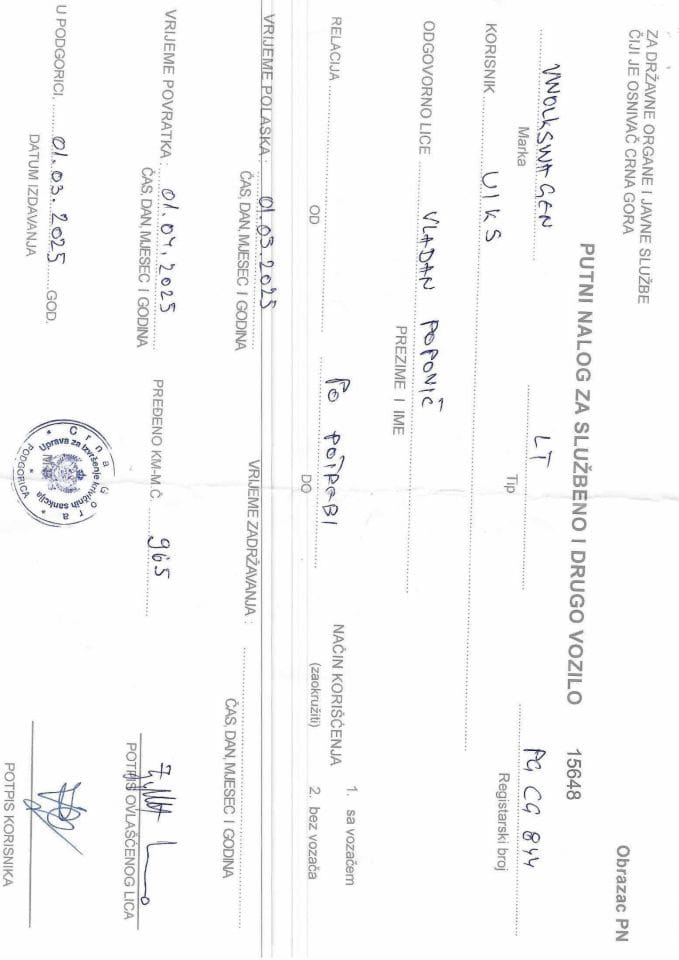 ZA DRŽAVNE ORGANE I JAVNE SLUŽBE
ČIJI JE OSNIVAČ CRNA GORA
Obrazac PN
PUTNI NALOG ZA SLUŽBENO I DRUGO VOZILO 15648
VWOLKSWAGEN LT PG CG 844
Marka Tip Registarski broj
KORISNIK UIKS
ODGOVORNO LICE VLADAN POPOVIĆ
PREZIME I IME
RELACIJA PO POTREBI
OD DO
NAČIN KORIŠĆENJA
(zaokružiti)
1. sa vozačem
2. bez vozača
VRIJEME POLASKA: 01.03.2025
ČAS, DAN, MJESEC I GODINA
VRIJEME ZADRŽAVANJA:
ČAS, DAN, MJESEC I GODINA
VRIJEME POVRATKA: 01.04.2025
ČAS, DAN, MJESEC I GODINA
PREĐENO KM-M.Č. 965
POTPIS OVLAŠĆENOG LICA
U PODGORICI, 01.03.2025 GOD.
DATUM IZDAVANJA
Crna Gora
Uprava za izvršenje krivičnih sankcija
PODGORICA
POTPIS KORISNIKA